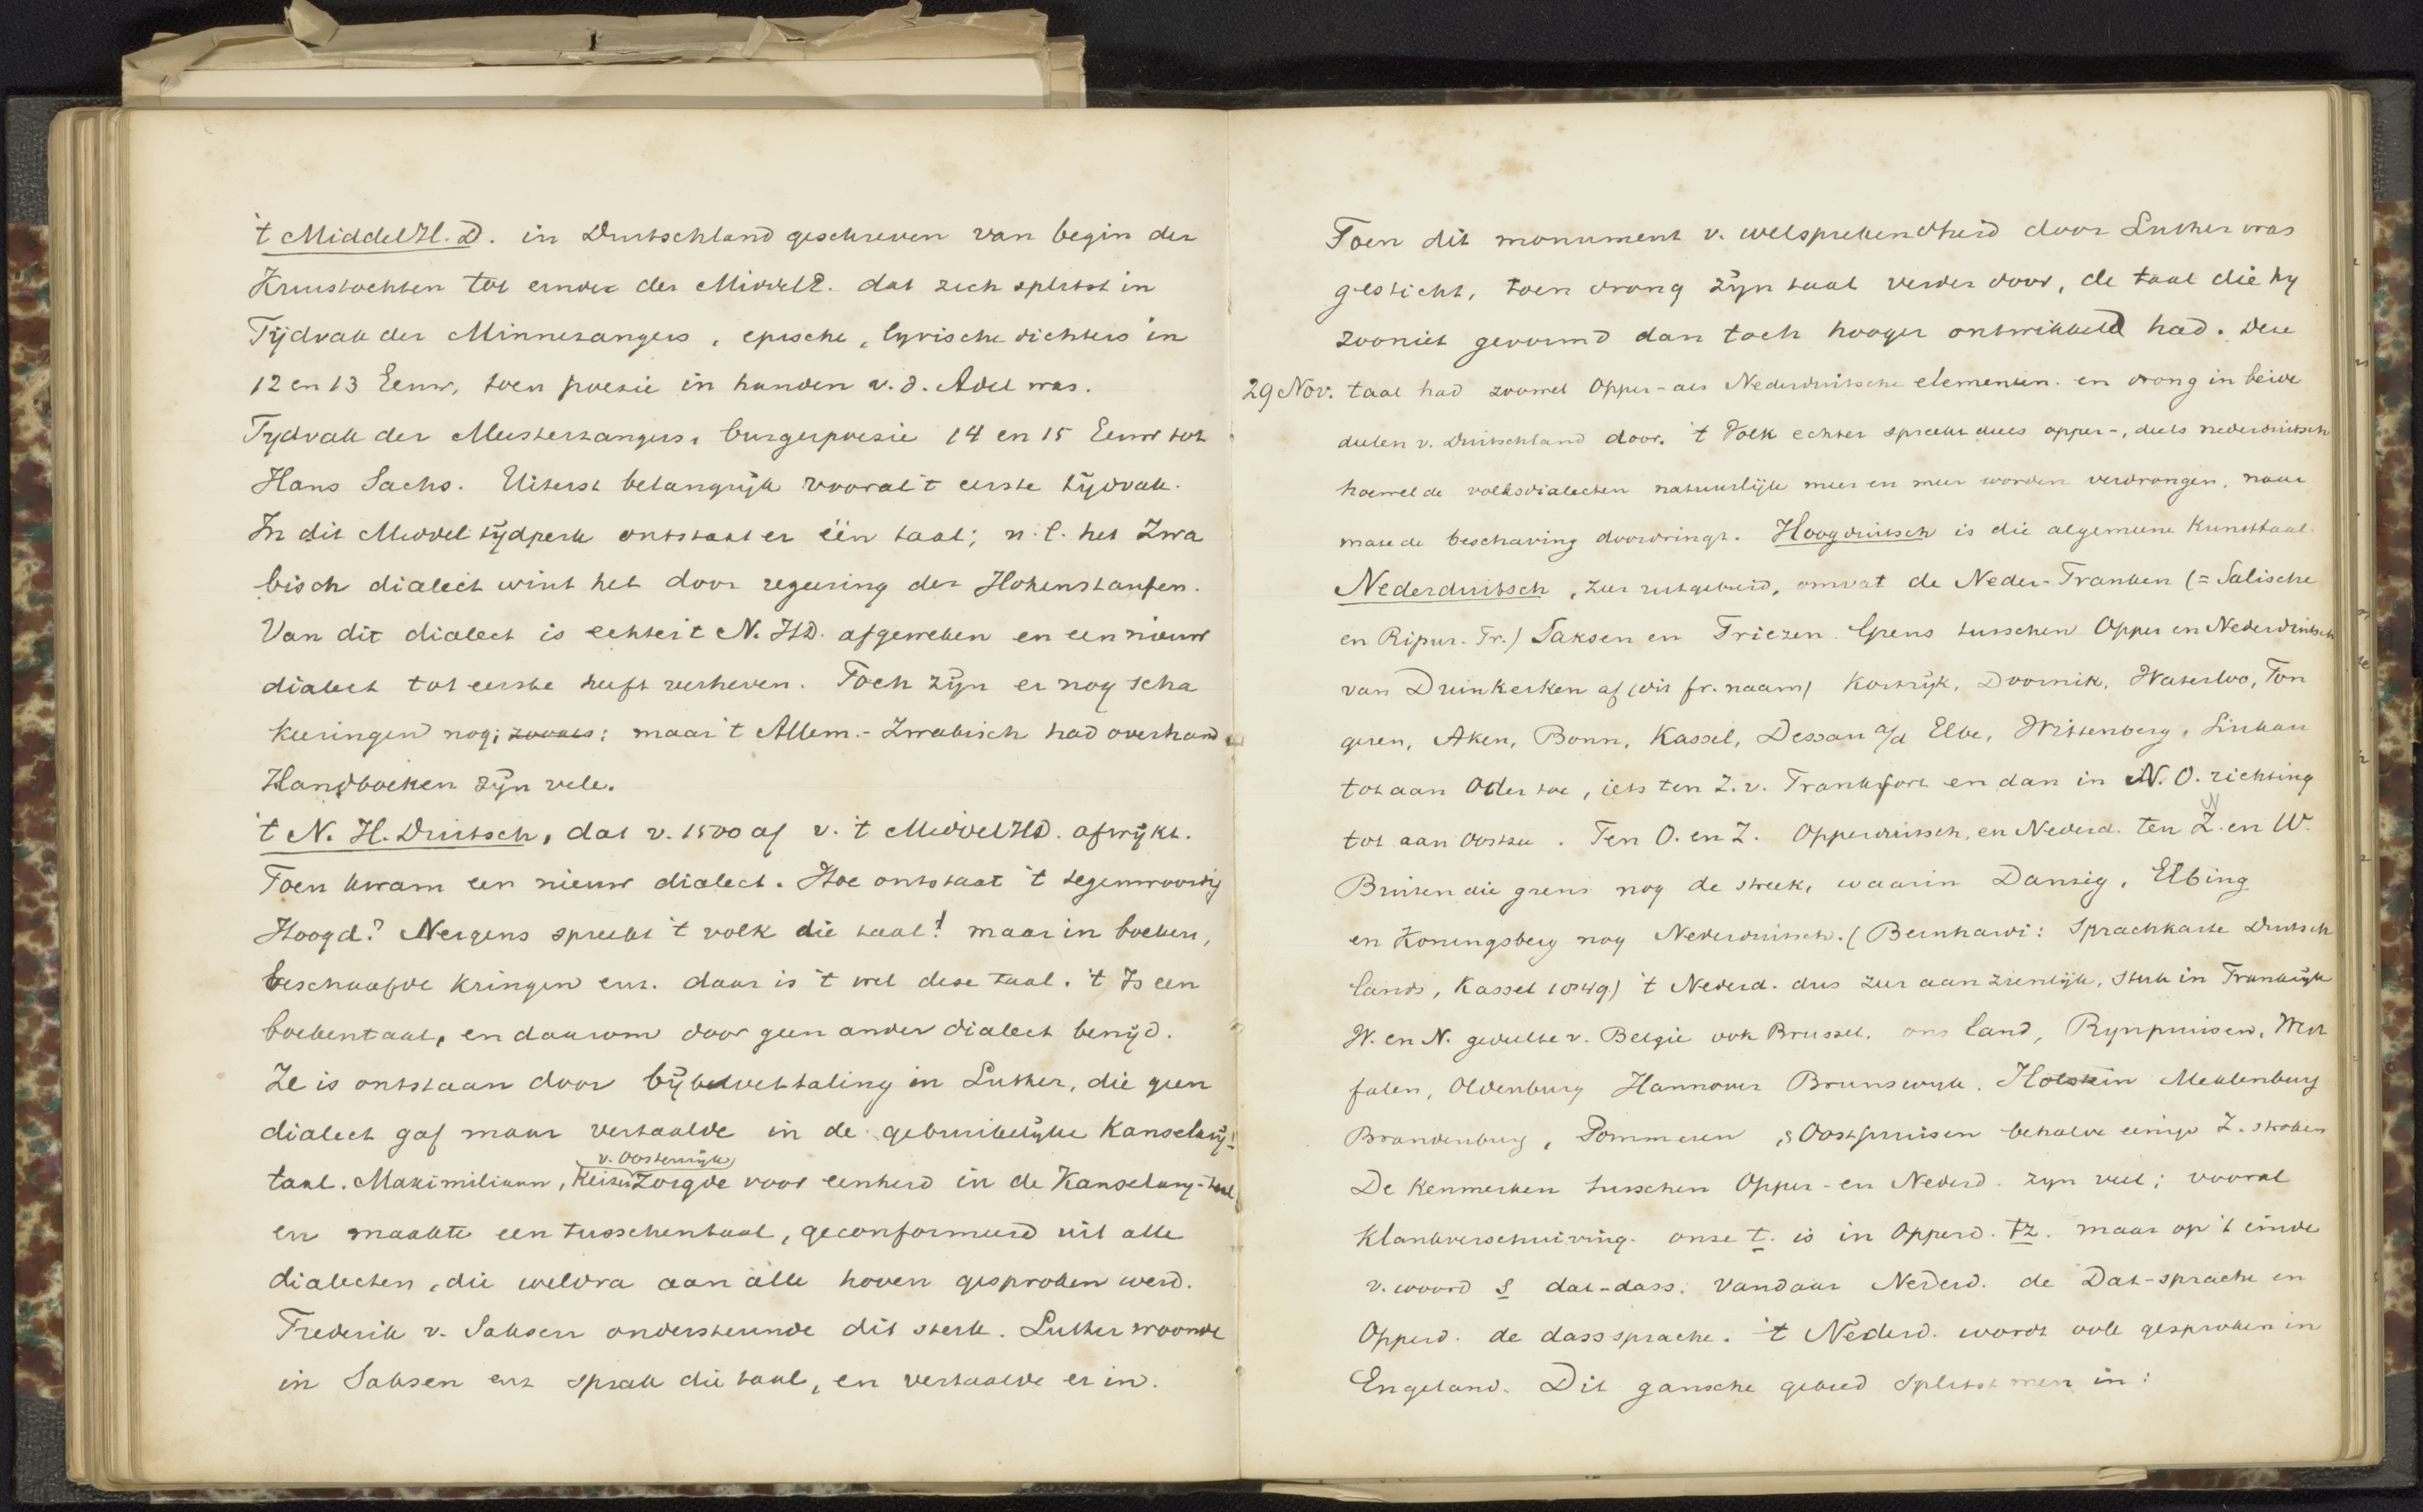 't Middel H. D. in Duitschland geschreven van begin der
Kruistochten tot einde der MiddelE. dat zich splitst in
Tijdvak der Minnezangers, epische, lyrische dichters in
12 en 13 Eeuw, toen poesie in handen v. d. Adel was.
Tydvak der Meesterzangers, burgerpoesie 14 en 15 Eeuw tot
Hans Sachs. Uiterst belangrijk vooral 't eerste tijdvak.
In dit Middeltijdperk ontstaat er één taal; n.l. het Zwa
bisch dialect wint het door regeering der Hohenstaufen.
Van dit dialect is echter 't N. HD. afgeweken en een nieuw
dialect tot eerste heeft verheven. Toch zijn er nog scha
keeringen nog; zooals: maar 't Allem.-Zwabisch had overhand
Handboeken zijn vele.
't N. H. Duitsch, dat v. 1500 af v. 't MiddelHD. afwijkt.
Toen kwam een nieuw dialect. Hoe ontstaat 't tegenwoordig
Hoogd? Nergens spreekt 't volk die taal! maar in boeken,
beschaafde kringen enz. daar is 't wel deze taal. 't Is een
boekentaal, en daarom door geen ander dialect benijd.
Ze is ontstaan door bijbelvertaling in Luther, die geen
dialect gaf maar vertaalde in de gebruikelijke Kanselarij-
taal. Maximiliaan, Keizer v. Oostenrijk zorgde voor eenheid in de Kanselary-taal
en maakte een tusschentaal, geconformeerd uit alle
dialecten, die weldra aan alle hoven gesproken werd.
Frederik v. Saksen ondersteunde dit sterk. Luther woonde
in Saksen enz sprak die taal, en vertaalde er in.
Toen dit monument v. welsprekendheid door Luther was
gesticht, toen drong zijn taal verder door, de taal die hy
zooniet gevormd dan toch hooger ontwikkeld had. Deze
29 Nov. taal had zoowel Opper- als Nederduitsche elementen. en drong in beide
deelen v. Duitschland door. 't Volk echter spreekt deels opper-, deels nederduitsch
hoewel de volksdialecten natuurlijk meer en meer worden verdrongen, naar
mate de beschaving doordringt. Hoogduitsch is die algemeene Kunsttaal.
Nederduitsch, zeer uitgebreid, omvat de Neder-Franken (= Salische
en Ripuar. Fr.) Saksen en Friezen. Grens tusschen Opper en Nederduitsch
van Duinkerken af (dit fr. naam) Kortrijk, Doornik, Waterloo, Ton
geren, Aken, Bonn, Kassel, Dessau a/d Elbe, Wittenberg, Lukau
tot aan Oder toe, iets ten Z. v. Frankfort en dan in N. O. richting
tot aan Oostzee. Ten O. en Z. Opperduitsch, en Nederd. ten Z. N en W.
Buiten die grens nog de streek, waarin Danzig, Elbing
en Koningsberg nog Nederduitsch. (Bernhardi: Sprachkarte Deutsch
lands, Kassel 1849) 't Nederd. dus zeer aanzienlijk, sterk in Frankrijk
W. en N. gedeelte v. Belgie ook Brussel, ons land, Rynpruisen, West
falen, Oldenburg Hannover Brunswyk, Holstein Meklenburg
Brandenburg, Pommeren, & Oostpruisen behalve eenige Z. stroken
De kenmerken tusschen Opper- en Nederd. zyn veel; vooral
Klankverschuiving. onze t. is in Opperd. tz. maar op 't einde
v. woord s dat-dass. Vandaar Nederd. de Dat-sprache en
Opperd. de dasssprache. 't Nederd. wordt ook gesproken in
Engeland. Dit gansche gebied splitst men in: